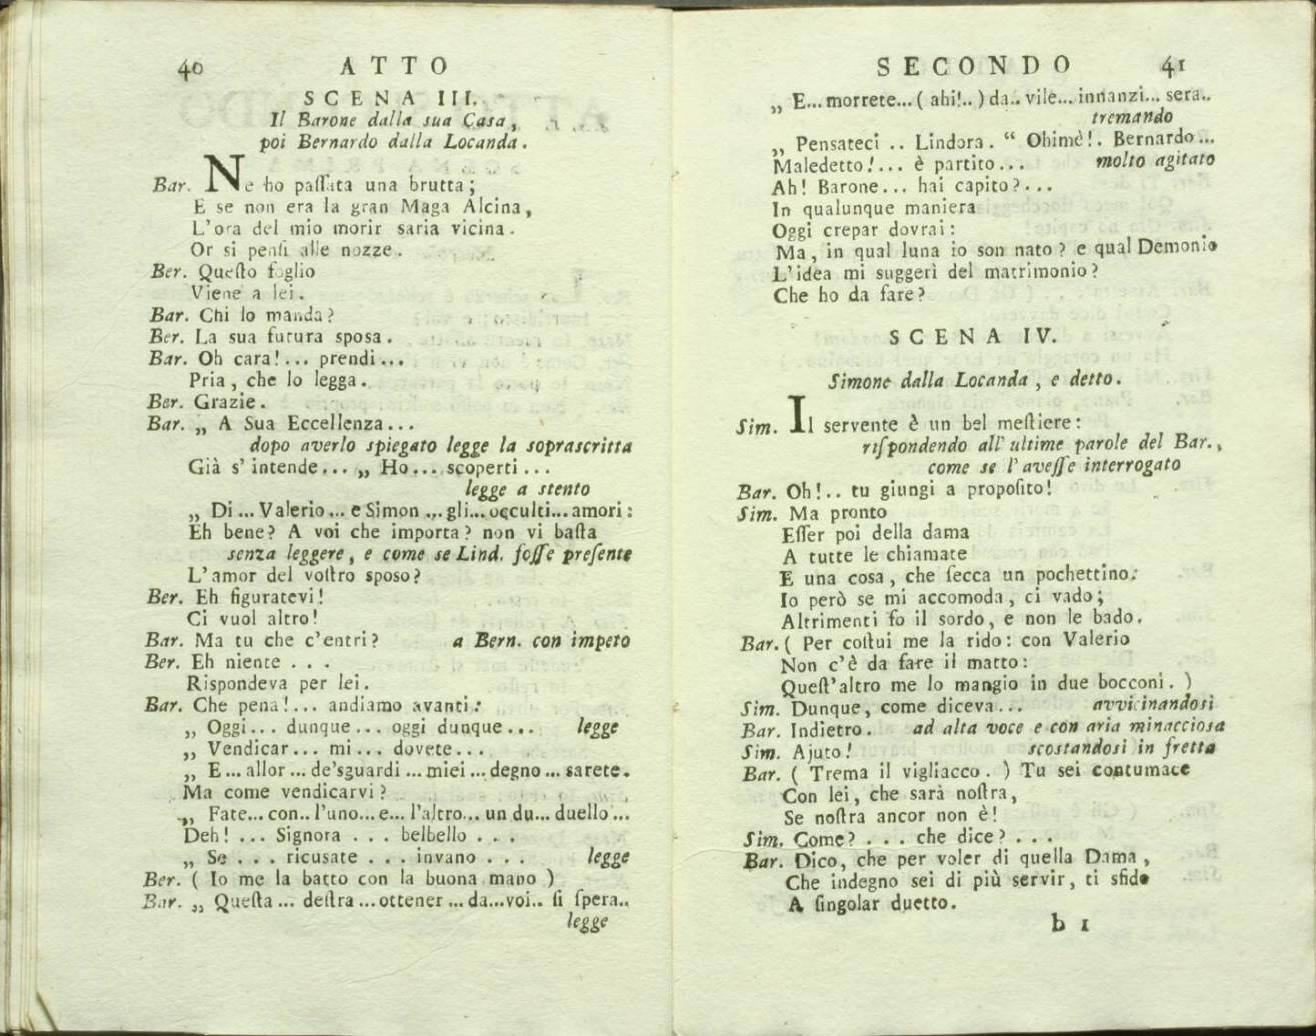 40 ATTO
SCENA III.
Il Barone dalla sua Casa,
poi Bernardo dalla Locanda.
Bar. Ne ho paſſata una brutta;
E se non era la gran Maga Alcina,
L'ora del mio morir saria vicina.
Or si penſi alle nozze.
Ber. Queſto foglio
Viene a lei.
Bar. Chi lo manda?
Ber. La sua futura sposa.
Bar. Oh cara!... prendi...
Pria, che lo legga.
Ber. Grazie.
Bar. „ A Sua Eccellenza...
dopo averlo spiegato legge la soprascritta
Già s'intende... „ Ho... scoperti...
legge a stento
„ Di... Valerio... e Simon... gli... occulti... amori:
Eh bene? A voi che importa? non vi baſta
senza leggere, e come se Lind. foſſe preſente
L'amor del voſtro sposo?
Ber. Eh figuratevi!
Ci vuol altro!
Bar. Ma tu che c'entri? a Bern. con impeto
Ber. Eh niente . . .
Rispondeva per lei.
Bar. Che pena!... andiamo avanti:
„ Oggi... dunque... oggi dunque... legge
„ Vendicar... mi... dovete...
„ E... allor... de'sguardi... miei... degno... sarete.
Ma come vendicarvi?
„ Fate... con.. l'uno... e... l'altro... un du... duello...
Deh! ... Signora . . . belbello . . .
„ Se . . . ricusate . . . invano . . . legge
Ber. ( Io me la batto con la buona mano )
Bar. „ Queſta... deſtra... ottener... da...voi.. ſi ſpera..
legge
SECONDO 41
„ E... morrete... ( ahi!.. ) da.. vile... innanzi... sera..
tremando
„ Pensateci .. Lindora. “ Ohimè!. Bernardo...
Maledetto!... è partito... molto agitato
Ah! Barone... hai capito?...
In qualunque maniera
Oggi crepar dovrai:
Ma, in qual luna io son nato? e qual Demonio
L'idea mi suggerì del matrimonio?
Che ho da fare?
SCENA IV.
Simone dalla Locanda, e detto.
Sim. Il servente è un bel meſtiere:
riſpondendo all'ultime parole del Bar.,
come se l'aveſſe interrogato
Bar. Oh!.. tu giungi a propoſito!
Sim. Ma pronto
Eſſer poi della dama
A tutte le chiamate
E una cosa, che ſecca un pochettino:
Io però se mi accomoda, ci vado;
Altrimenti fo il sordo, e non le bado.
Bar. ( Per coſtui me la rido: con Valerio
Non c'è da fare il matto:
Queſt'altro me lo mangio in due bocconi. )
Sim. Dunque, come diceva... avvicinandosi
Bar. Indietro. ad alta voce e con aria minacciosa
Sim. Ajuto! scostandosi in fretta
Bar. ( Trema il vigliacco. ) Tu sei contumace
Con lei, che sarà noſtra,
Se noſtra ancor non è!
Sim. Come? . . . che dice? . . .
Bar. Dico, che per voler di quella Dama,
Che indegno sei di più servir, ti sfido
A ſingolar duetto.
b 1